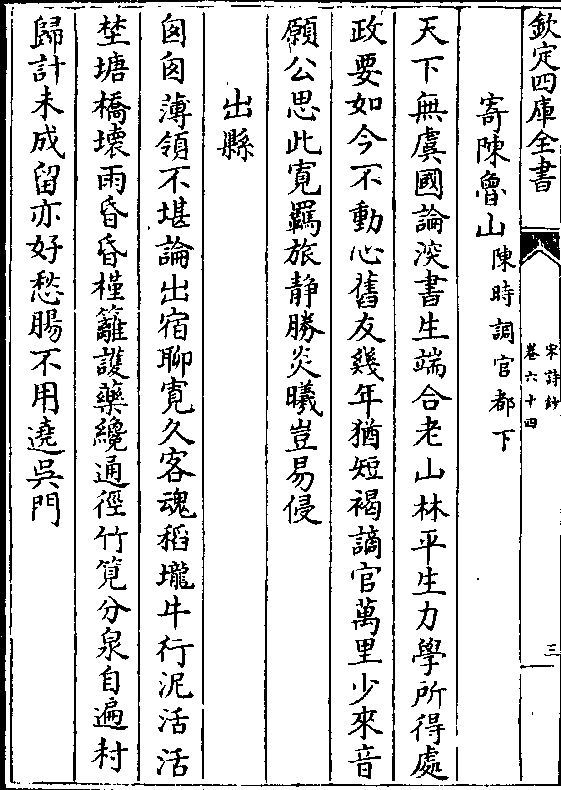 欽定四庫全書
宋詩鈔
卷六十四
三
寄陳魯山陳時調官都下
天下無虞國論深書生端合老山林平生力學所得處
政要如今不動心舊友幾年猶短褐謫官萬里少來音
願公思此寛羈旅静勝炎曦豈易侵
出縣
匆匆薄領不堪論出宿聊寛久客魂稻壠牛行泥活活
埜塘橋壞雨昏昏槿籬護藥纔通徑竹筧分泉自遍村
歸計未成留亦好愁腸不用遶吳門